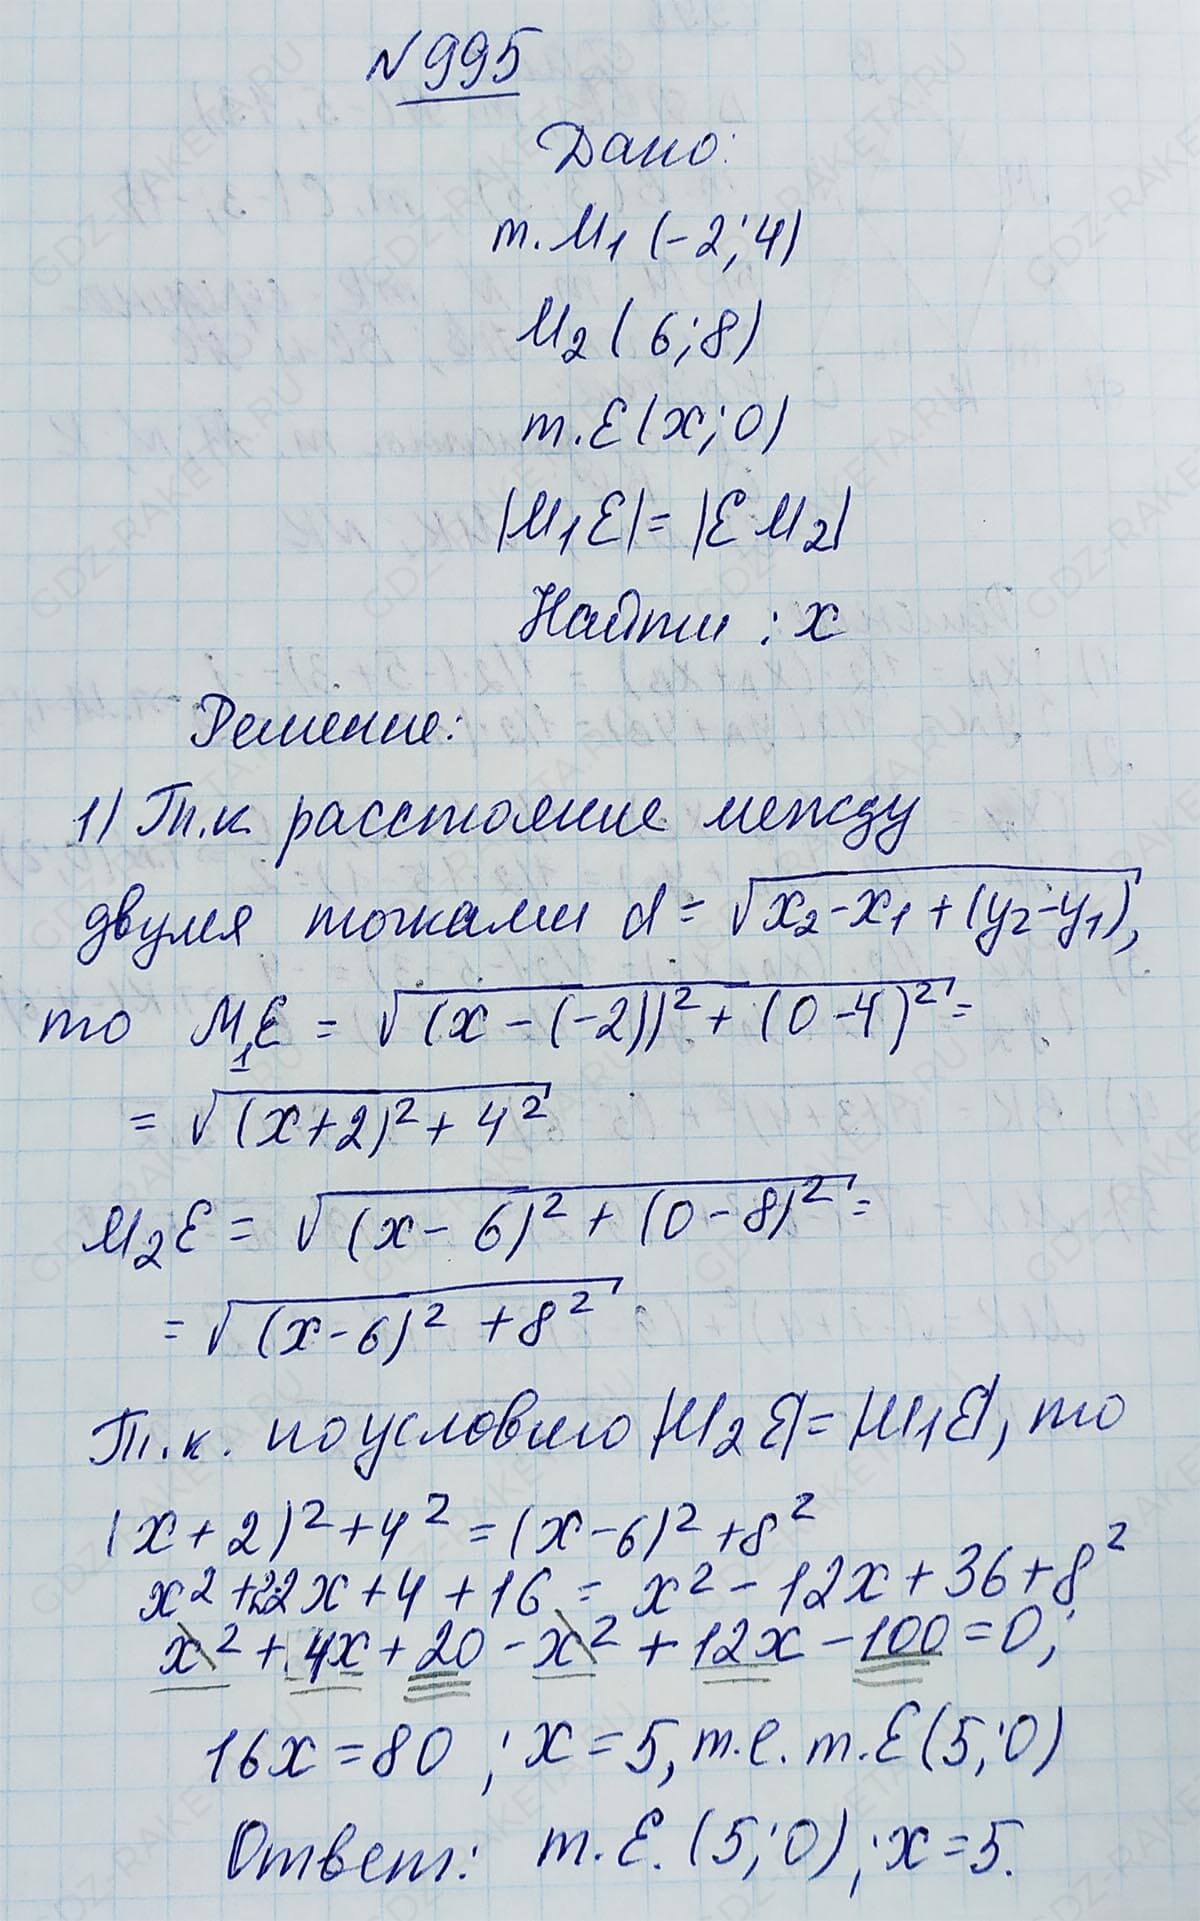 N 995
Дано:
т. M₁ (-2; 4)
M₂ ( 6; 8)
т. E (x; 0)
|M₁E| = |E M₂|
Найти : x
Решение:
1) Т.к расстояние между
двумя точками d = √x₂-x₁+(y₂-y₁),
то M₁E = √(x-(-2))²+(0-4)² =
= √(x+2)²+4²
M₂E = √(x-6)²+(0-8)² =
= √(x-6)²+8²
Т.к. по условию |M₂E| = |M₁E|, то
(x+2)²+4² = (x-6)²+8²
x²+2·2x+4+16 = x²-12x+36+8²
x²+4x+20-x²+12x-100=0;
16x=80 ; x=5, т.е. т. E (5; 0)
Ответ: т. E. (5; 0) ; x=5.
GDZ-RAKETA.RU